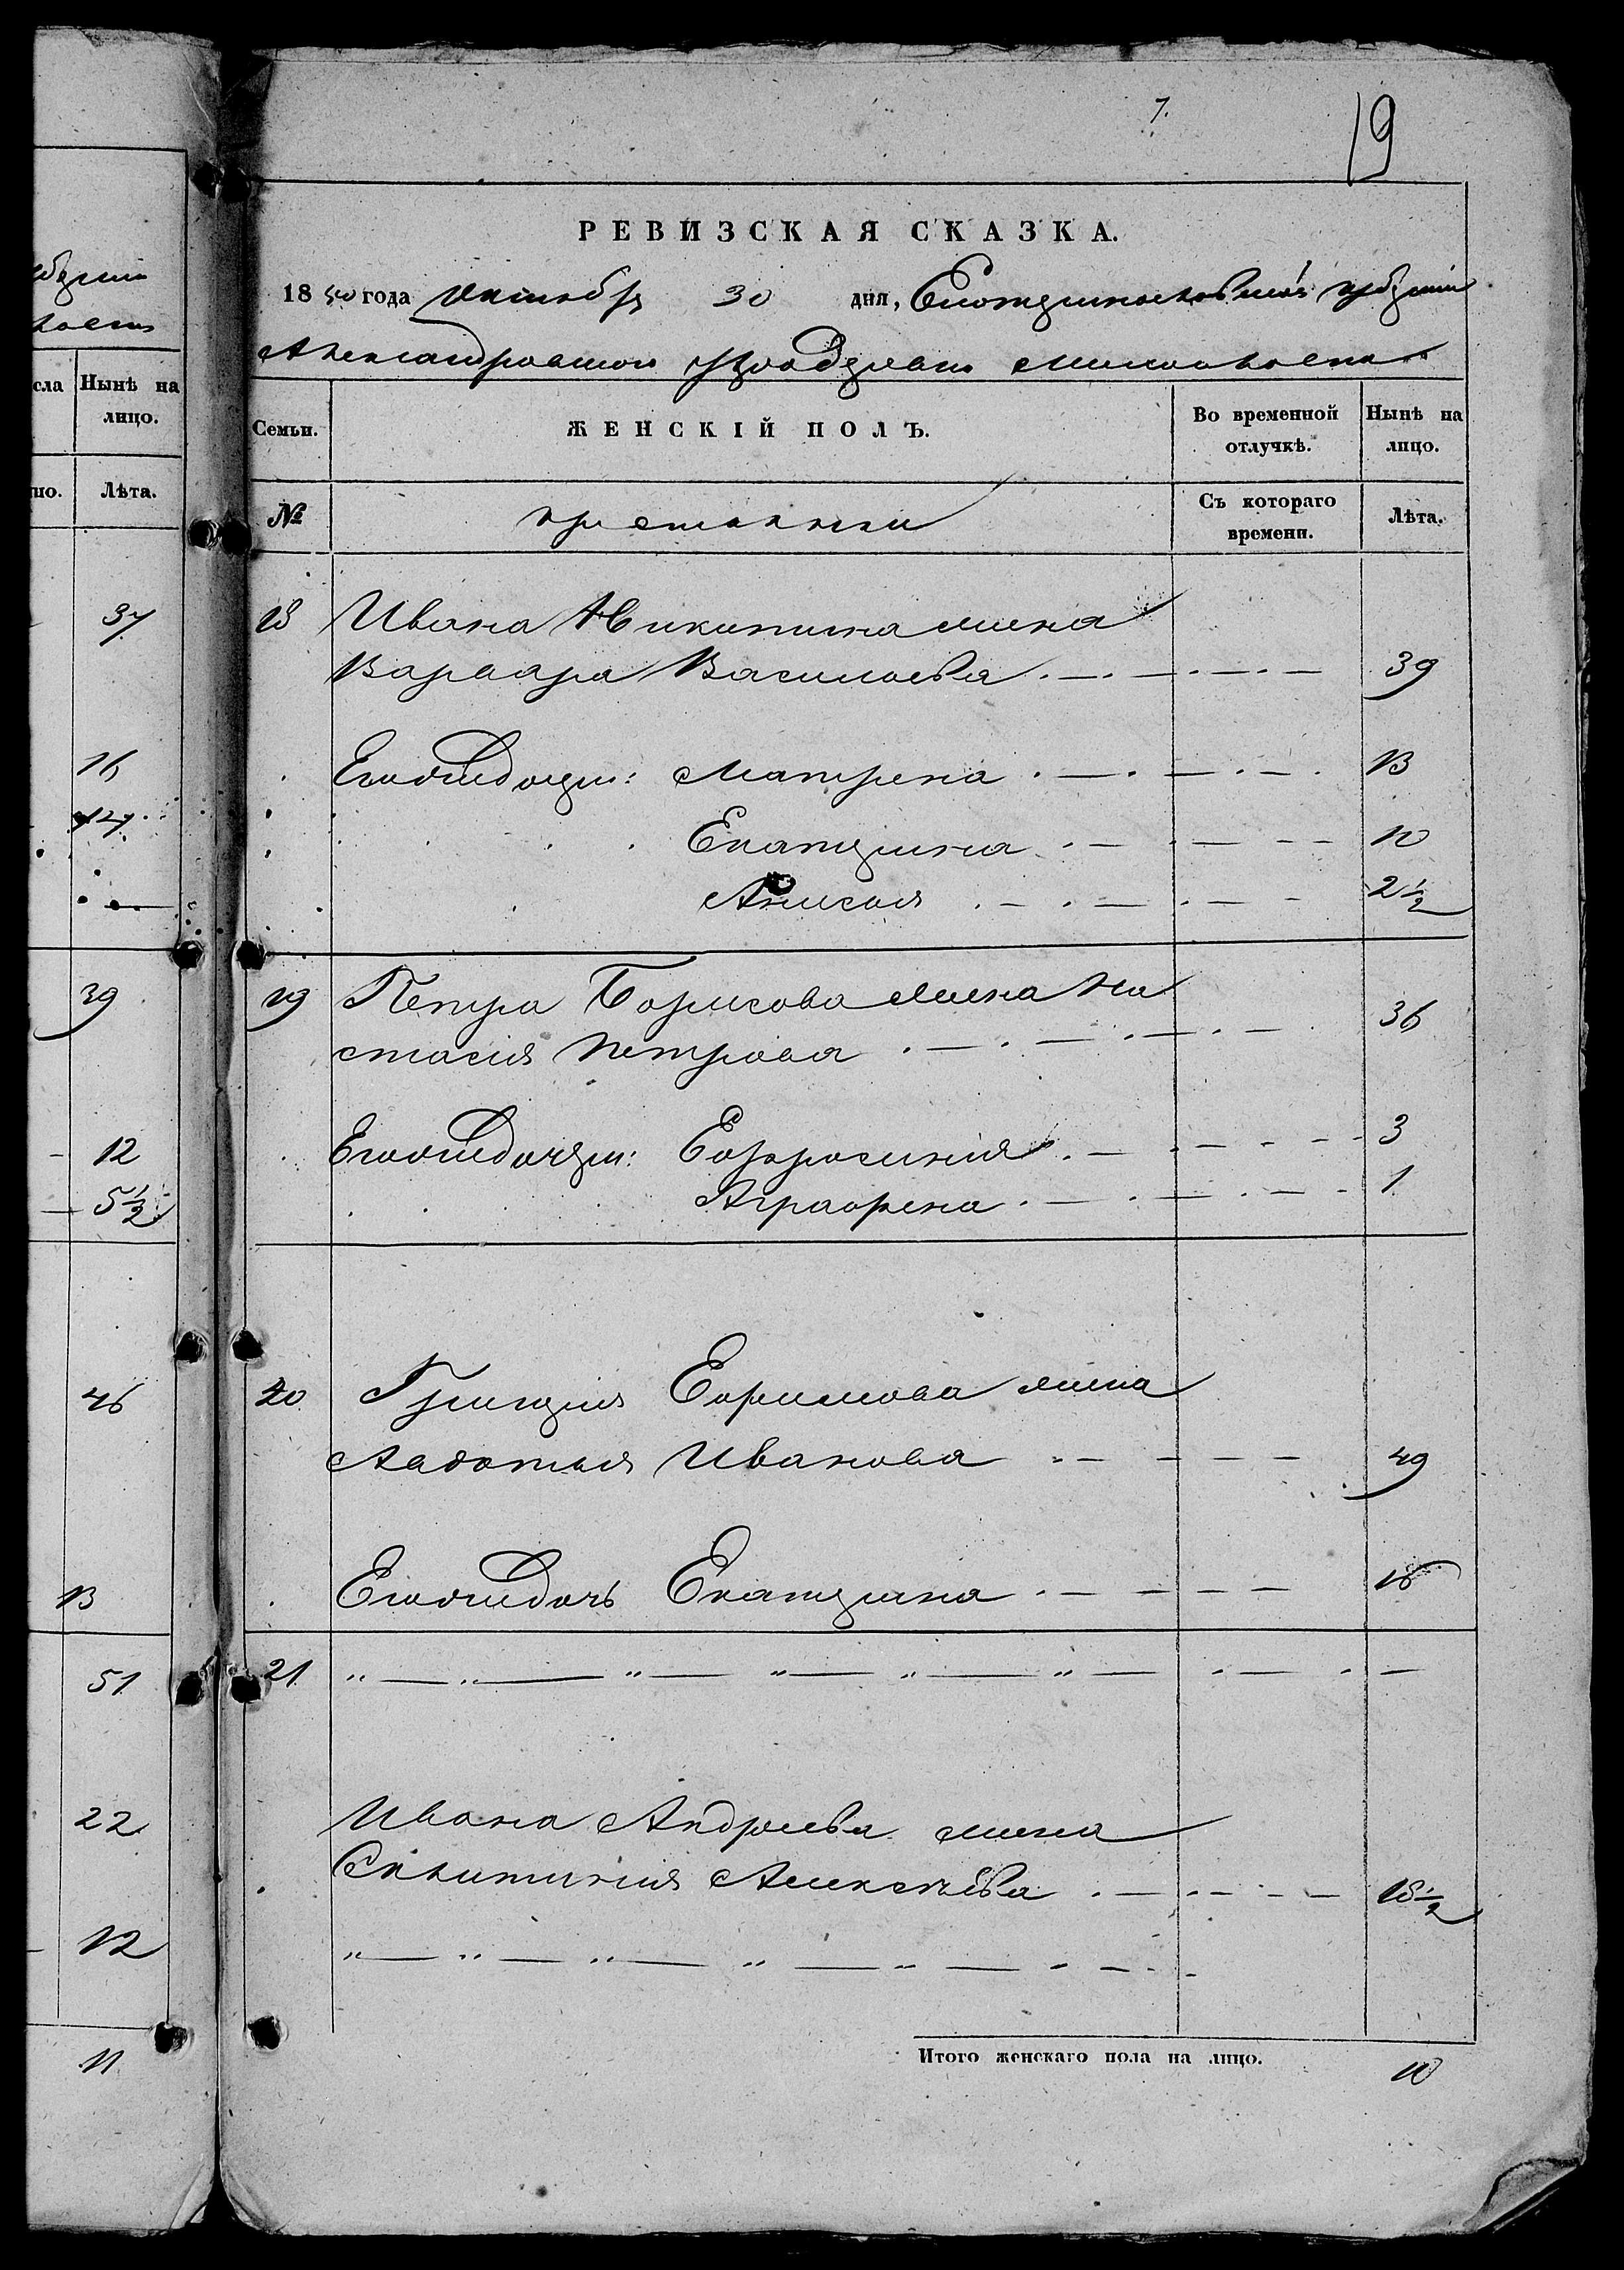 7.
19
РЕВИЗСКАЯ СКАЗКА.
1850 года Октября 30 дня, Екатеринославской губерніи
Александровскаго
Семьи.
ЖЕНСКІЙ ПОЛЪ.
Во временной отлучкѣ.
Нынѣ на лицо.
№
Съ котораго времени.
Лѣта.
18 Ивана Никитина жена
Варвара Васильева 39
Егоже дочери: Матрена 13
Екатерина 10
Анисія 2½
19 Петра Борисова жена На
стасія Петрова 36
Егоже дочери: Ефросинія 3
Аграфена 1
20 Григорія Ефимова жена
Авдотья Иванова 49
Егоже дочь Екатерина 16
21
Ивана Андреева жена
Алексѣева 18½
Итого женскаго пола на лицо. 10
сла
Нынѣ на лицо.
Лѣта.
37
16
39
12
5½
46
13
51
22
12
11